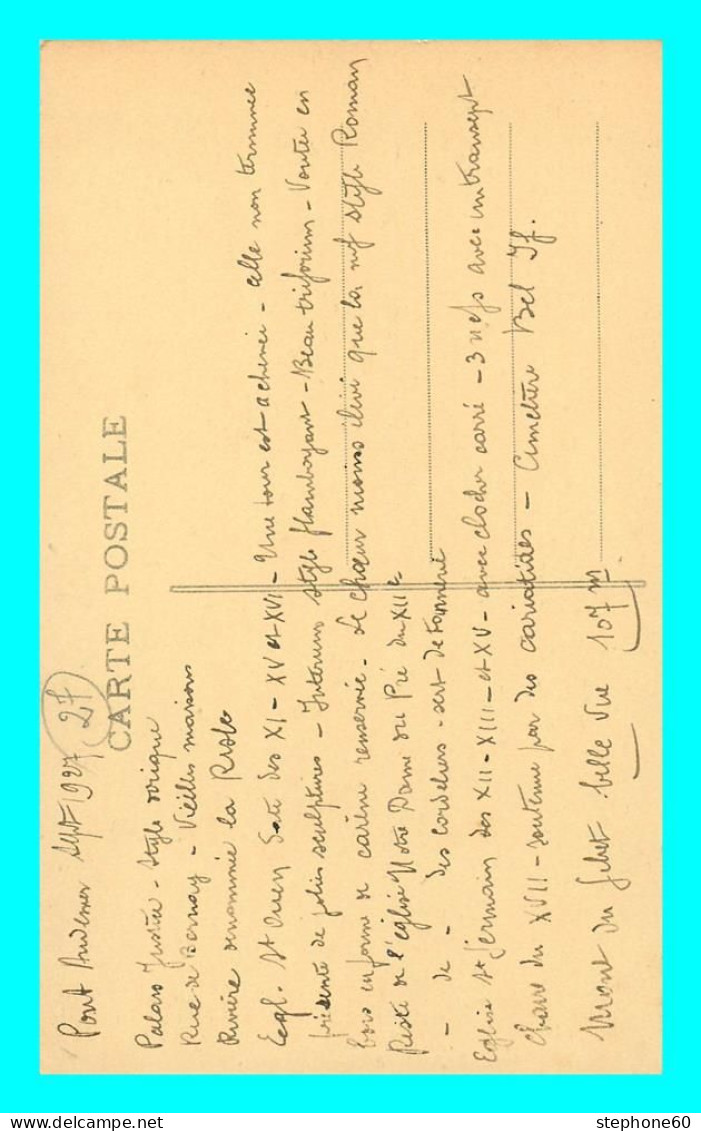 Pont Audemer Sept 1927
27
CARTE POSTALE
Palais Justice - Style dorique
Rue de Bernay - Vieilles maisons
Rivière dénommée la Risle
Egl. St Ouen Date des XI - XV et XVI - Une tour est achevée - elle non terminée
présente de jolies sculptures - Intérieur style flamboyant - Beau triforium - Voutes en
bois en forme de carène renversée - Le chœur moins élevé que la nef style Roman
Reste de l'église Notre Dame du Pré du XII e
- de - des Cordeliers - sert de
Eglise St Germain des XII - XIII - et XV - avec clocher carré - 3 nefs avec un transept
Chaire du XVII - soutenue par des cariatides - Cimetière Bel If.
Mont du Gibet belle vue 107 m
stephone60